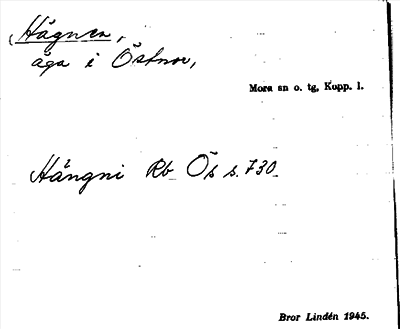 (Hågnen,
äga i Östnor,
Mora sn o. tg, Kopp. l.
Hångni Rb Ös s. 730
Bror Lindén 1945.